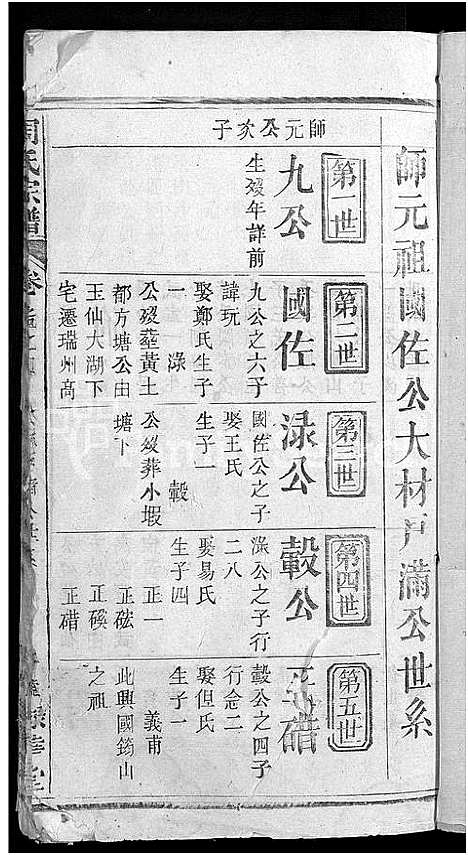 師元祖國佐公大材戶滿公世系
師元公次子
第一世
九公
生歿年詳前
第二世
國佐
九公之六子
諱玩
娶鄭氏生子
一 淥
公歿塟黃土
都方塘公由
玉仙大湖下
宅遷瑞州高
第三世
淥公
國佐公之子
娶王氏
生子一
轂
公歿葬小塅
塘下
第四世
轂公
淥公之子行
二八
娶易氏
生子四
正一
正硋
正磎
正碏
第五世
正碏
轂公之四子
行念二
娶但氏
生子一
義甫
此興國筠山
之祖
周氏宗譜
卷